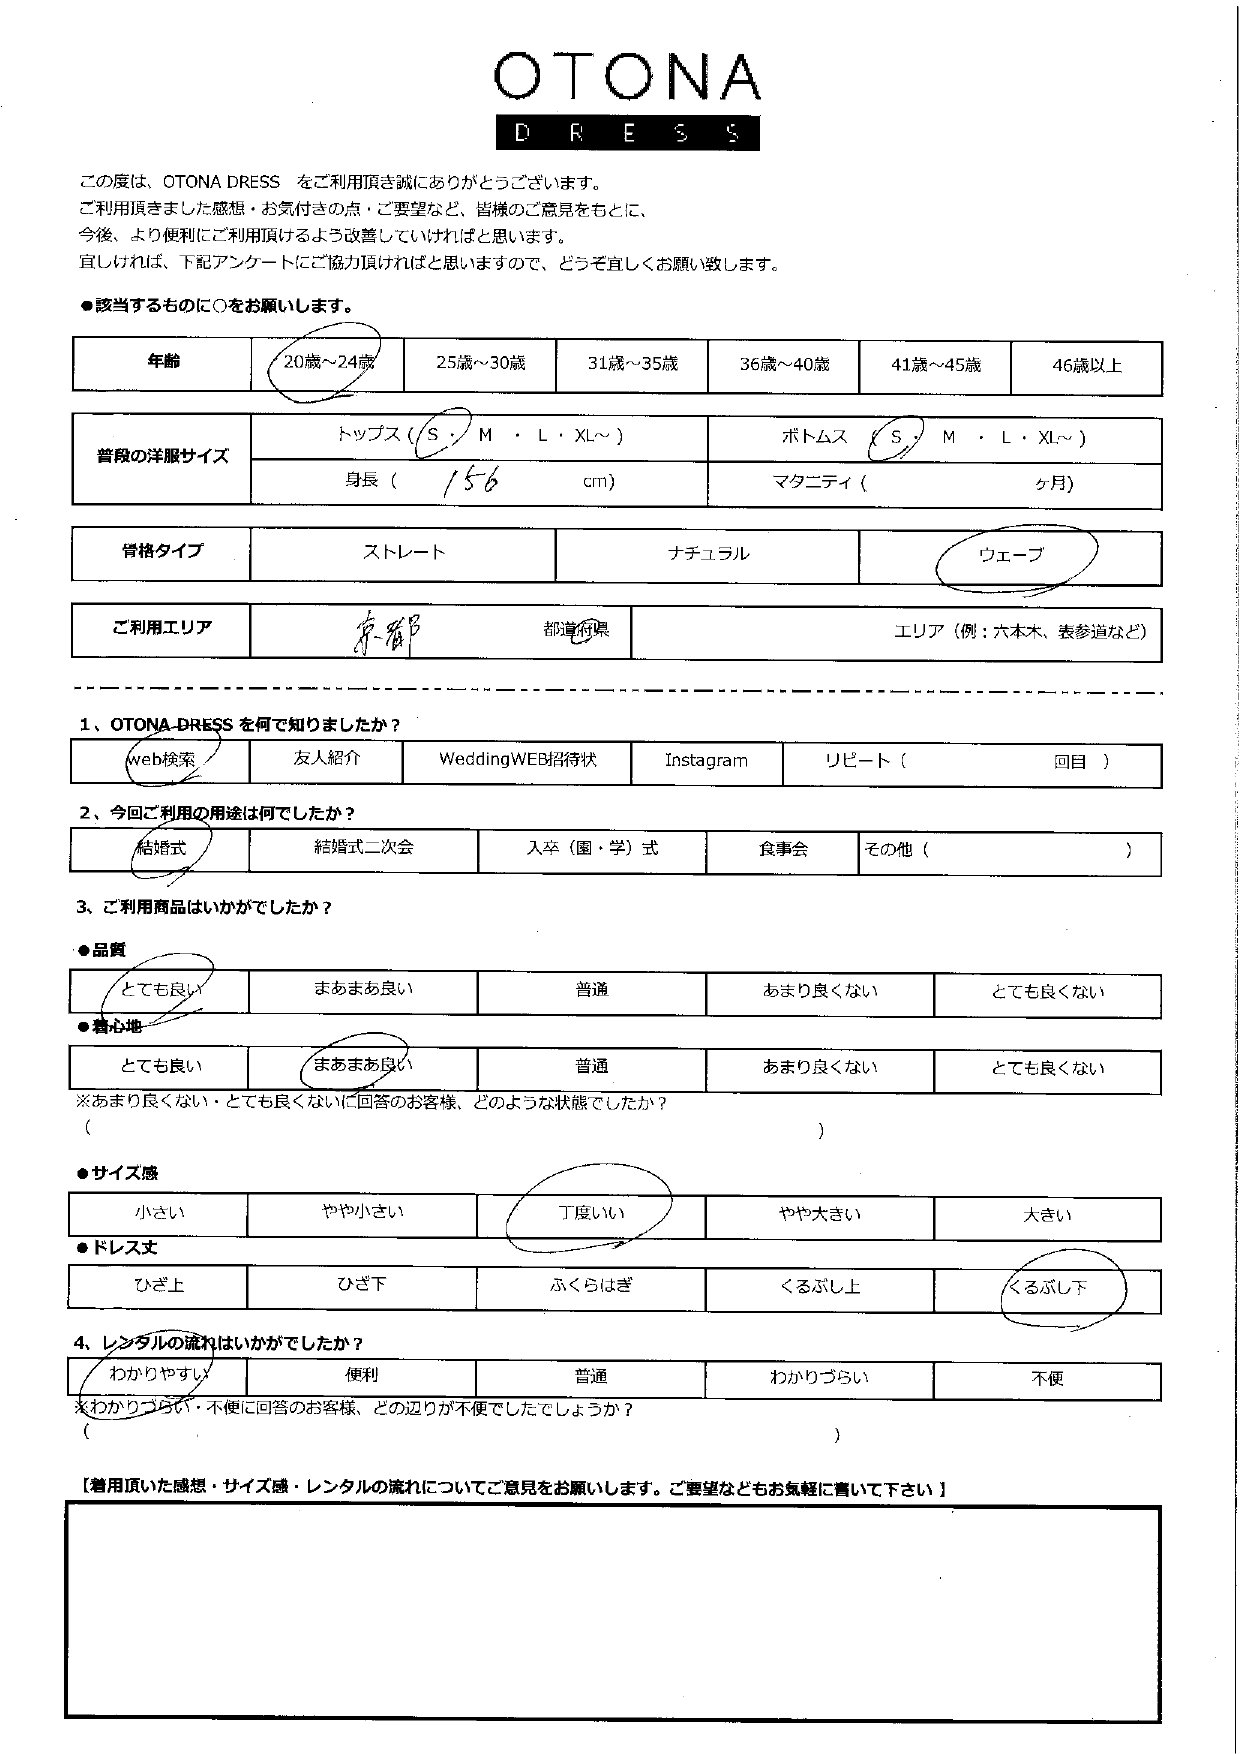 OTONA
DRESS
この度は、OTONA DRESS　をご利用頂き誠にありがとうございます。
ご利用頂きました感想・お気付きの点・ご要望など、皆様のご意見をもとに、
今後、より便利にご利用頂けるよう改善していければと思います。
宜しければ、下記アンケートにご協力頂ければと思いますので、どうぞ宜しくお願い致します。
●該当するものに○をお願いします。
年齢 20歳～24歳 25歳～30歳 31歳～35歳 36歳～40歳 41歳～45歳 46歳以上
普段の洋服サイズ トップス ( S ・ M ・ L ・ XL～ ) ボトムス ( S ・ M ・ L ・ XL～ )
身長 ( 156 cm) マタニティ ( ヶ月)
骨格タイプ ストレート ナチュラル ウェーブ
ご利用エリア 京都 都道府県 エリア（例：六本木、表参道など）
1、OTONA DRESS を何で知りましたか？
web検索 友人紹介 WeddingWEB招待状 Instagram リピート ( 回目 )
2、今回ご利用の用途は何でしたか？
結婚式 結婚式二次会 入卒（園・学）式 食事会 その他 ( )
3、ご利用商品はいかがでしたか？
●品質
とても良い まあまあ良い 普通 あまり良くない とても良くない
●着心地
とても良い まあまあ良い 普通 あまり良くない とても良くない
※あまり良くない・とても良くないに回答のお客様、どのような状態でしたか？
( )
●サイズ感
小さい やや小さい 丁度いい やや大きい 大きい
●ドレス丈
ひざ上 ひざ下 ふくらはぎ くるぶし上 くるぶし下
4、レンタルの流れはいかがでしたか？
わかりやすい 便利 普通 わかりづらい 不便
※わかりづらい・不便に回答のお客様、どの辺りが不便でしたでしょうか？
( )
【着用頂いた感想・サイズ感・レンタルの流れについてご意見をお願いします。ご要望などもお気軽に書いて下さい 】